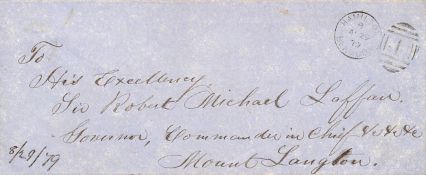 To
His Excellency
Sir Robert Michael Laffan.
Governor, Commander in Chief &c &c &c
Mount Langton.
8/29/79
HAMILTON